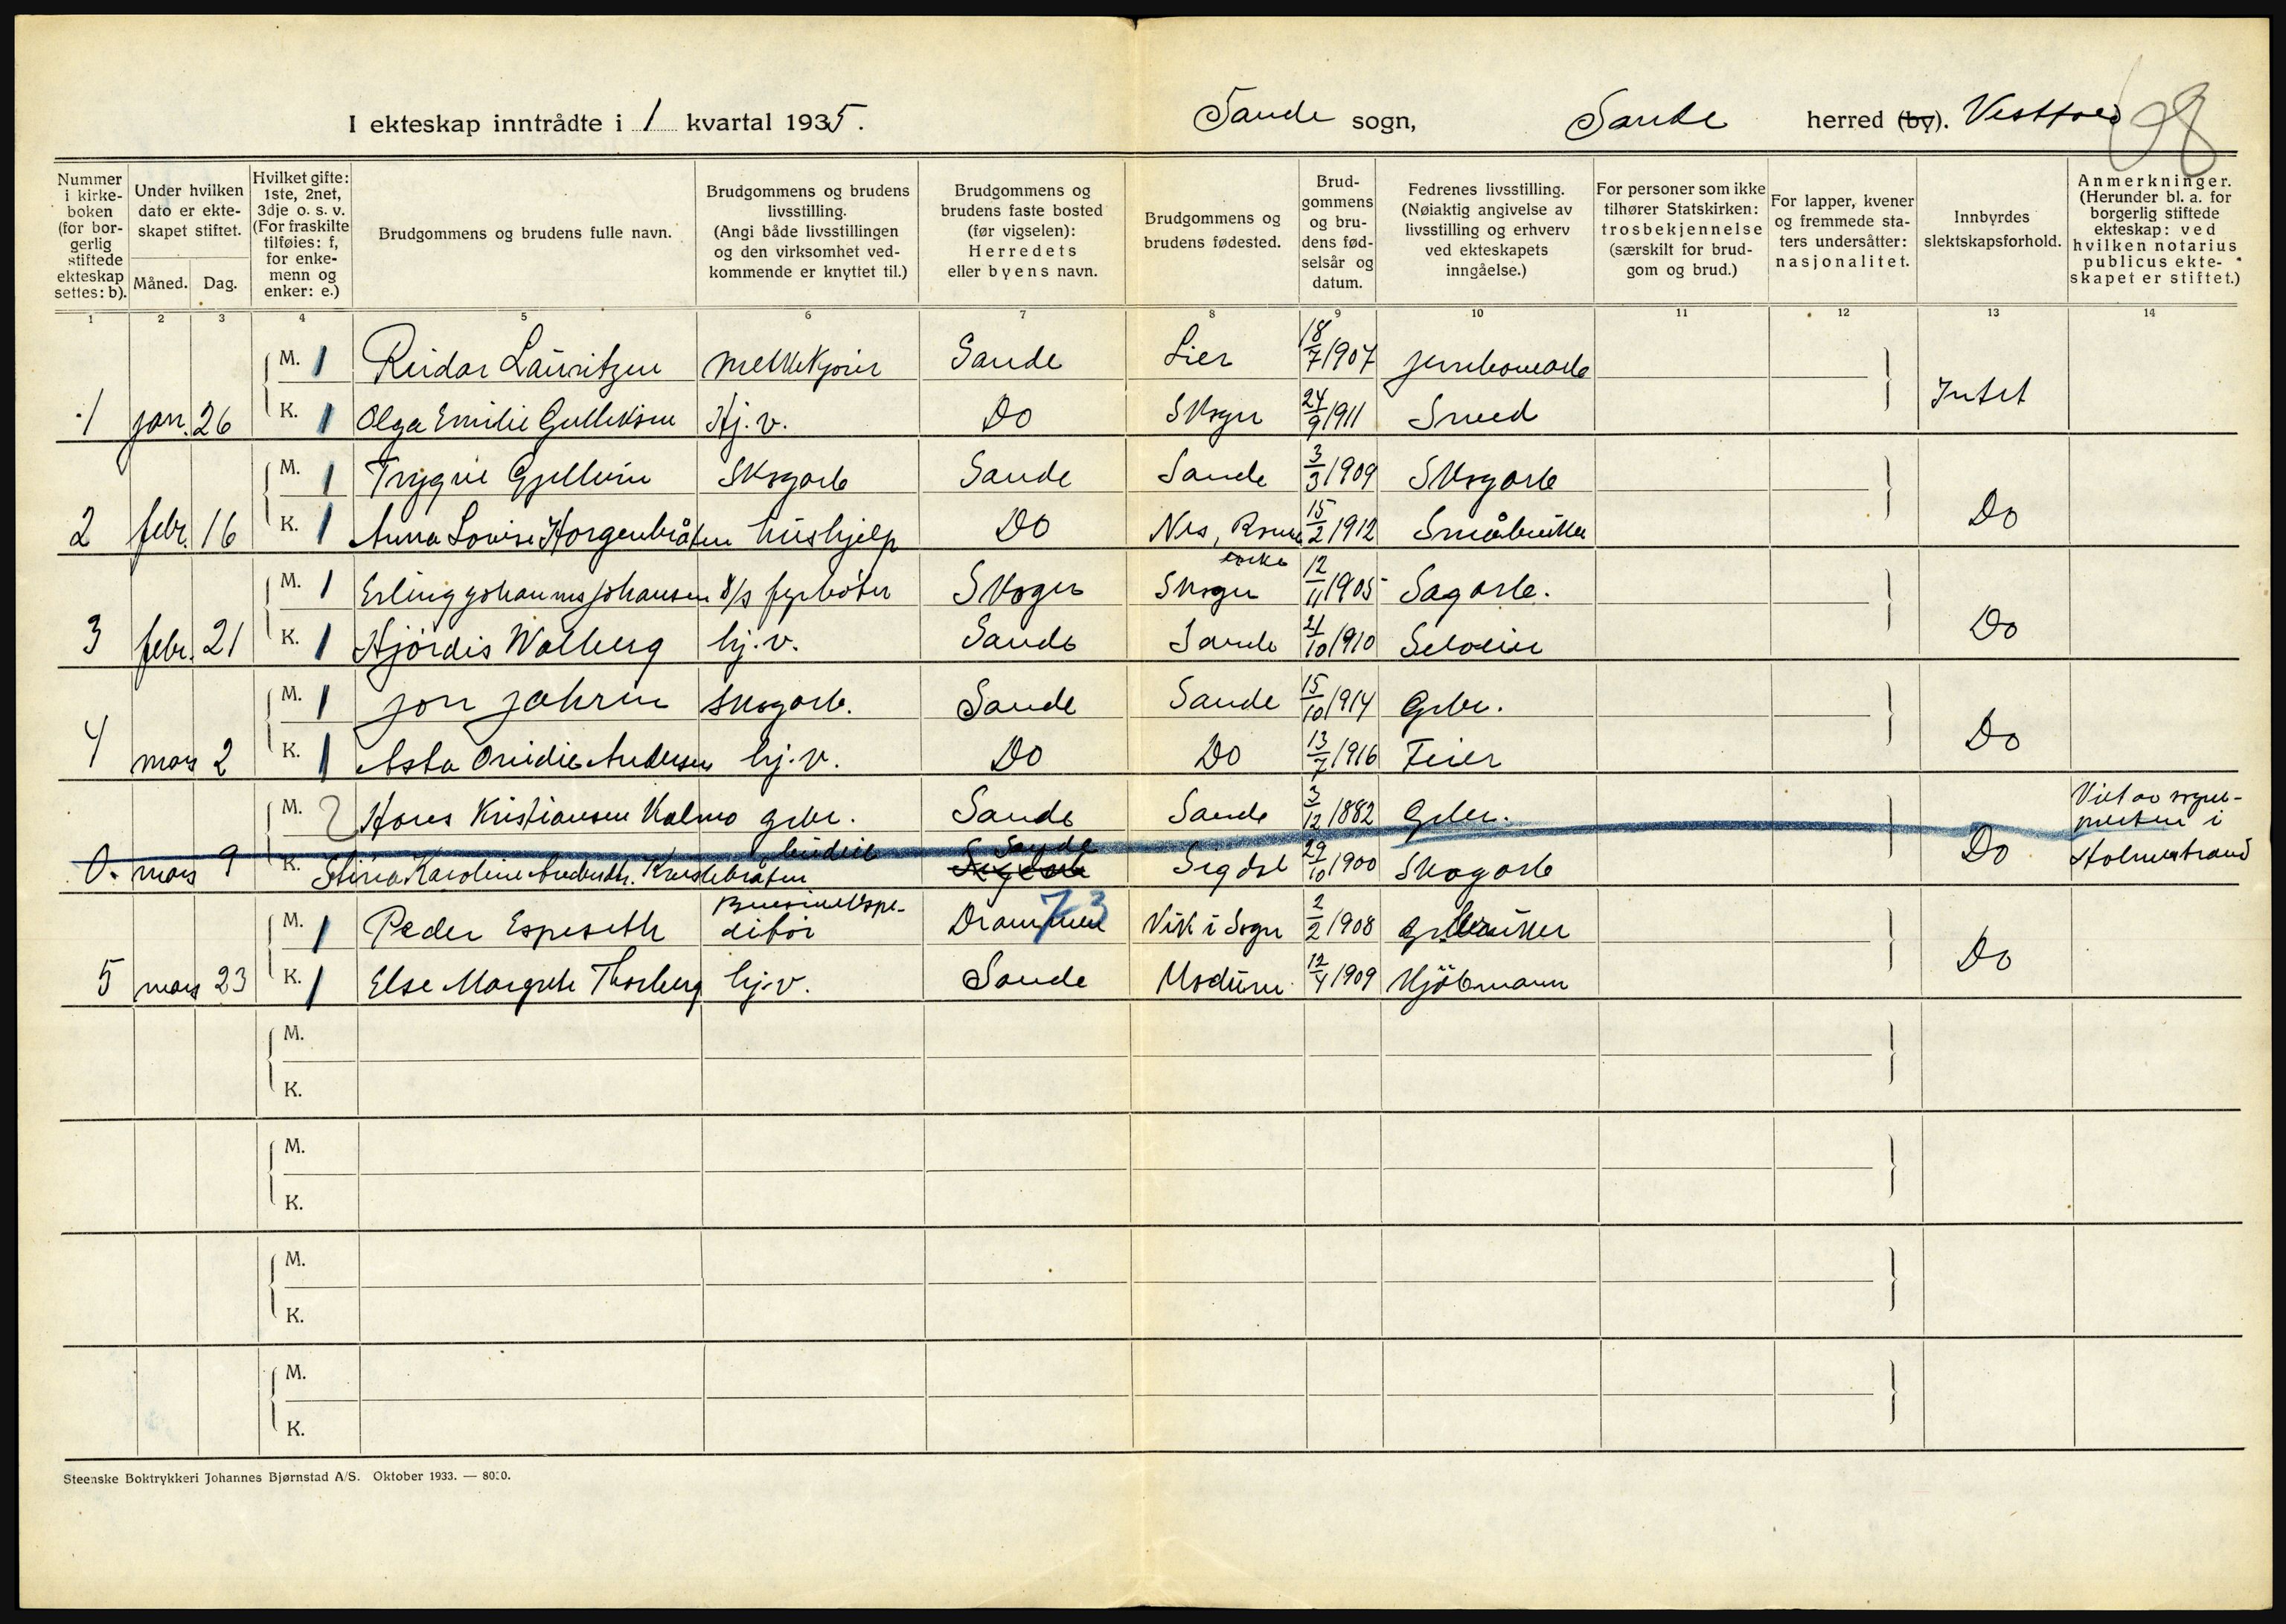 I ekteskap inntrådte i 1 kvartal 1935. Sande sogn, Sande herred (by). Vestfold
98
Nummer i kirkeboken (for borgerlig stiftede ekteskap settes: b).
Under hvilken dato er ekteskapet stiftet.
Måned. Dag.
Hvilket gifte: 1ste, 2net, 3dje o. s. v. (For fraskilte tilføies: f, for enkemenn og enker: e.)
Brudgommens og brudens fulle navn.
Brudgommens og brudens livsstilling. (Angi både livsstillingen og den virksomhet vedkommende er knyttet til.)
Brudgommens og brudens faste bosted (før vigselen): Herredets eller byens navn.
Brudgommens og brudens fødested.
Brudgommens og brudens fødselsår og datum.
Fedrenes livsstilling. (Nøiaktig angivelse av livsstilling og erhverv ved ekteskapets inngåelse.)
For personer som ikke tilhører Statskirken: trosbekjennelse (særskilt for brudgom og brud.)
For lapper, kvener og fremmede staters undersåtter: nasjonalitet.
Innbyrdes slektskapsforhold.
Anmerkninger. (Herunder bl. a. for borgerlig stiftede ekteskap: ved hvilken notarius publicus ekteskapet er stiftet.)
1 2 3 4 5 6 7 8 9 10 11 12 13 14
M. 1 Reidar Lauritzen melkekjører Sande Lier 18/7 1907 jernbanearb
1 jan. 26 K. 1 Olga Emilie Gulliksen Hj. v. Do Skoger 24/9 1911 Smed Intet
M. 1 Trygve Gjellum Skogarb Sande Sande 3/3 1909 Skogarb
2 febr. 16 K. 1 Anna Lovise Horgenbråten hushjelp Do Nes, Romerike 15/2 1912 Småbruker Do
M. 1 Erling Johannes Johansen s/s fyrbøter Skoger Skoger 12/11 1905 Sagarb.
3 febr. 21 K. 1 Hjördis Walberg hj. v. Sande Sande 21/10 1910 Selveier Do
M. 1 Jon Jahren skogarb. Sande Sande 15/10 1914 Grbr.
4 mars 2 K. 1 Asta Ovidie Andersen hj. v. Do Do 13/7 1916 Feier Do
M. 2 Hans Kristiansen Kalmo grbr. Sande Sande 3/12 1882 Grbr. Viet av sogne-
presten i
0. mars 9 K. Stina Karoline Andersdtr. budeie Sande Sigdal Sigdal 29/10 1900 Skogarb Do Holmestrand
M. 1 Peder Espeseth Drammen 73 Vik i Sogn 2/2 1908 Grbruker
5 mars 23 K. 1 Else Margrete Thorberg hj. v. Sande Modum 12/4 1909 Kjöbmann Do
M.
K.
M.
K.
M.
K.
M.
K.
Steenske Boktrykkeri Johannes Bjørnstad A/S. Oktober 1933. — 8000.